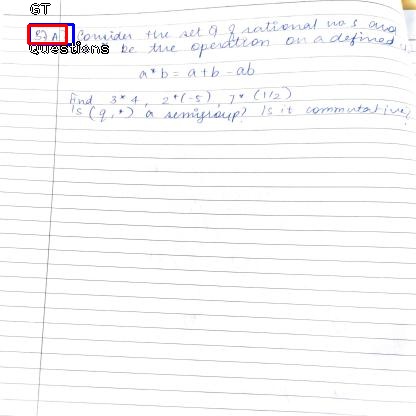 GT
57 A) Consider the set Q of rational nos and
Questions
be the operation on a defined
a * b = a + b - ab
Find 3 * 4, 2 * (-5), 7 * (1/2)
Is (Q, *) a semigroup? Is it commutative?